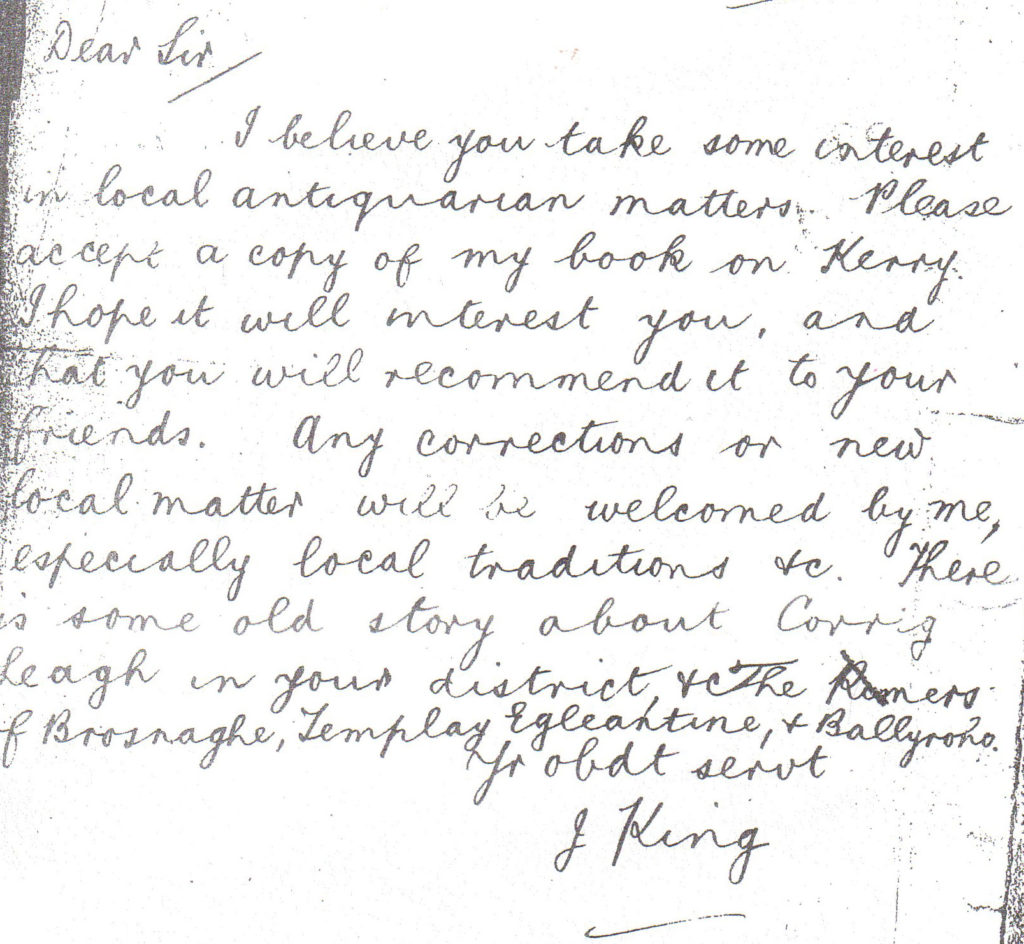 Dear Sir
I believe you take some interest
in local antiquarian matters. Please
accept a copy of my book on Kerry.
I hope it will interest you, and
that you will recommend it to your
friends. Any corrections or new
local matter will be welcomed by me,
especially local traditions &c. There
is some old story about Corrig
Leagh in your district, &c The
of Brosnaghe, Templay Egleantine, & Ballyroho.
Yr obdt servt
J King